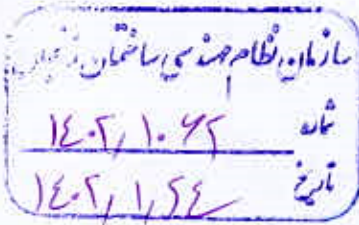 سازمان نظام مهندسی ساختمان زنجان
شماره ۱۴۰۲,۱۰۶۲
تاریخ ۱۴۰۲,۱,۲۴